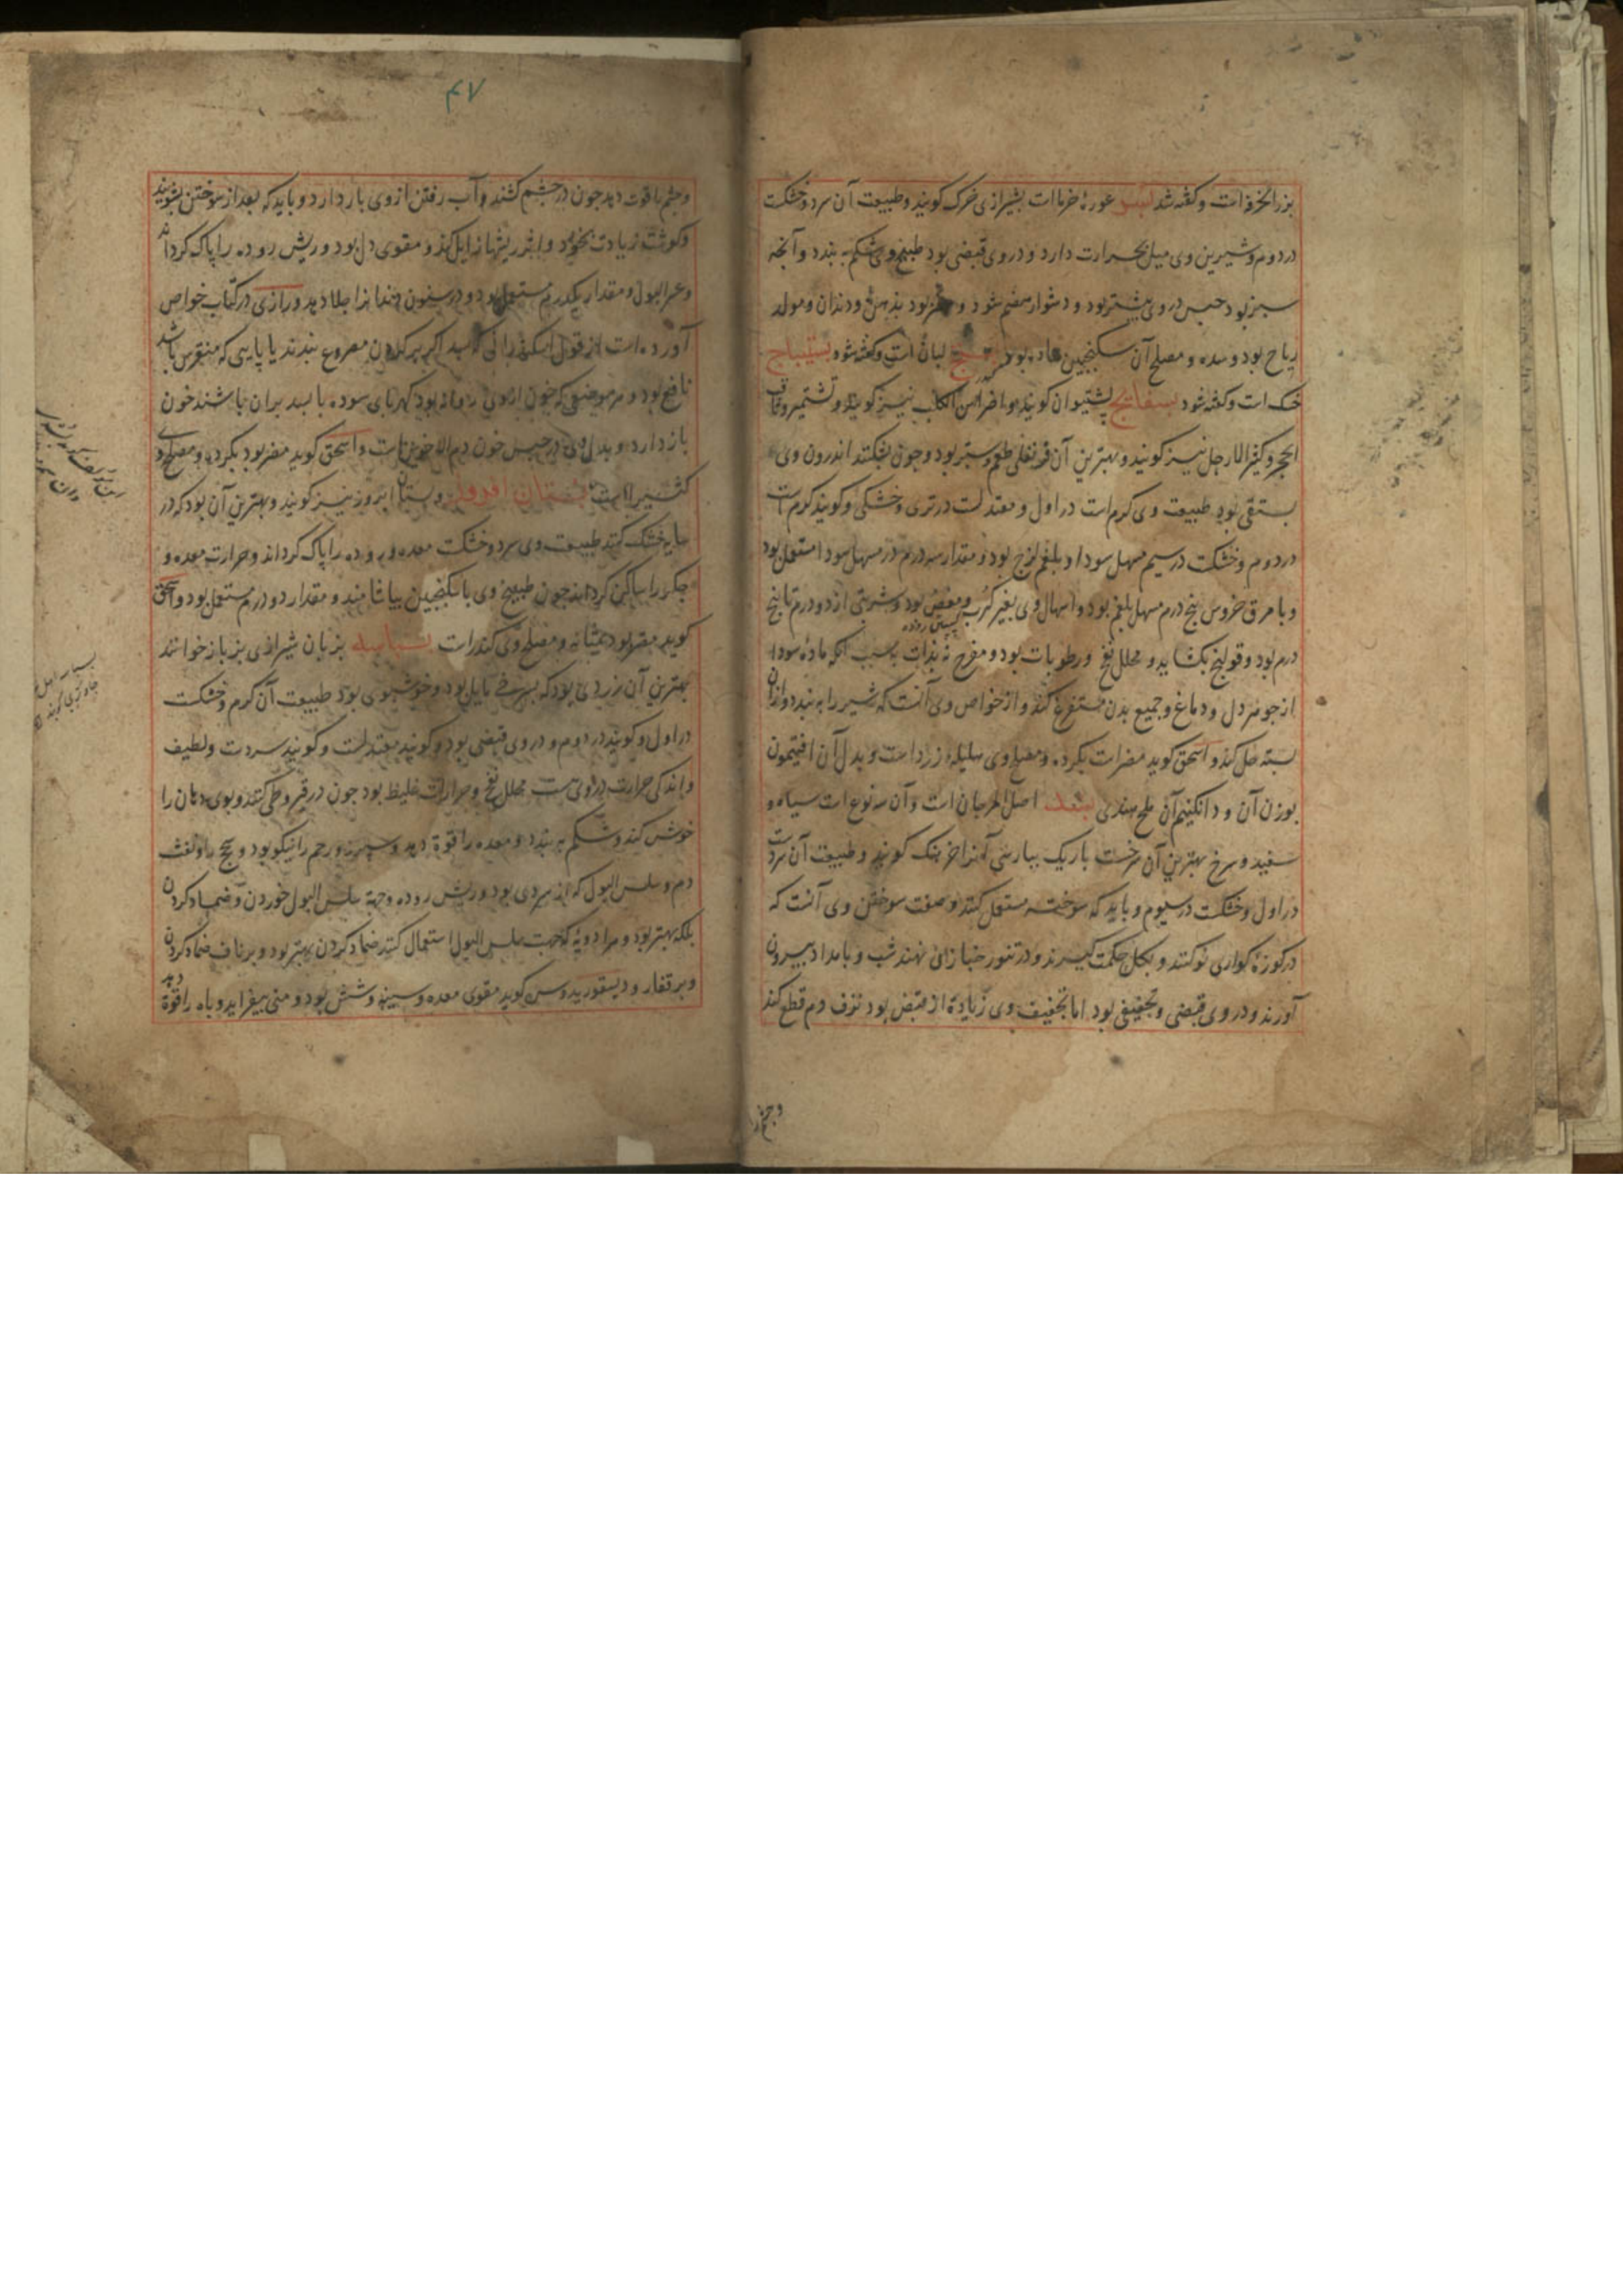 بزرالخرفه است و کفته شد بسر عورهٔ خرما است بشیرازی خرک کویند و طبیعت آن سرد و خشکست
در دوم و شیرین وی میل بحرارت دارد و در وی قبضی بود طبیخ وی شکم به بندد و آنچه
سبز بود حبس در وی بیشتر بود و دشوار هضم شود و بود بذهن و دندان و مولد
ریاح بود و سده و مصلح آن سکنجبین ساده بود لبان است و کفته شود بستیباج
خسک است و کفته شود بسفایج پشتیوان کویند و اضراس الکلب نیز کویند و تشتمیر و ثاقب
الحجر و کثیر الارجل نیز کویند و بهترین آن قرنفلی طعم و ستبر بود و چون بشکنند اندرون وی
بستقی بود طبیعت وی کرم است در اول و معتدلست در تری و خشکی و کویند کرم است
در دوم و خشکست در سیم مسهل سودا و بلغم لزج بود و مقدار سه درم در مسهل سودا مستعمل بود
و با مرق خروس پنج درم مسهل بلغم بود و اسهال وی بغیر کرب و مغص بود و شربتی از دو درم تا پنج
درم بود و قولنج بکشاید و محلل نفخ و رطوبات بود و مفرح نه بذات به سبب انکه ماده سودا
از جوهر دل و دماغ و جمیع بدن مستفرغ کند و از خواص وی آنست که شیر را به بندد و از آن
بسته حل کند و اسحق کوید مضر است بکرده و مصلح وی هلیله زرد است و بدل آن افتیمون
بوزن آن و دانکینیم آن ملح هندی بسد اصل المرجان است و آن سه نوع است سیاه و
سفید و سرخ بهترین آن سرخست باریک بپارسی آنرا خزهک کویند و طبیعت آن سردست
در اول و خشکست در سیوم و باید که سوخته مستعمل کنند و صفت سوختن وی آنست که
در کوزهٔ کواری نو کنند و بکل حکمت کیرند و در تنور خبازان نهند شب و بامداد بیرون
آورند و در وی قبضی و تجفیفی بود اما تجفیف وی زیادة از قبض بود نزف دم قطع کند
و چشم
۴۷
و چشم را قوت دهد چون در چشم کشند و آب رفتن از وی باز دارد و باید که بعد از سوختن بشویند
و کوشت زیادت بخورد و اثر ریشها زایل کند و مقوی دل بود و ریش روده را پاک کرداند
و عسر البول و مقدار یکدرم مستعمل بود و در سنون دندانرا جلا دهد و رازی در کتاب خواص
آورده است از قول اسکندر که بسد اکر بر کردن مصروع بندند یا پایی که منقرس باشد
نافع بود و هر موضعی که خون از وی روانه بود کهربای سوده با بسد بران پاشند خون
باز دارد و بدل وی در حبس خون دم الاخوین است و اسحق کوید مضر بود بکرده و مصلح وی
کثیرا است بستان افروز و بستان ابروز نیز کویند و بهترین آن بود که در
سایه خشک کنند طبیعت وی سرد و خشکست معده و روده را پاک کرداند و حرارت معده و
جکر را ساکن کرداند چون طبیخ وی با سکنجبین بیاشامند و مقدار دو درم مستعمل بود و اسحق
کوید مضر بود بمثانه و مصلح وی کندر است بسباسه بزبان شیرازی بزباز خوانند
بهترین آن زردی بود که بسرخی مایل بود و خوشبوی بود طبیعت آن کرم و خشکست
در اول و کویند در دوم و در وی قبضی بود و کویند معتدلست و کویند سردست و لطیف
و اندکی حرارت در وی هست محلل نفخ و حرارات غلیظ بود چون در قیروطی کنند و بوی دهان را
خوش کند و شکم به بندد و معده را قوة دهد و سپرز و رحم را نیکو بود و سحج را و نفث
دم و سلس البول که از سردی بود و ریش روده و جهة سلس البول خوردن و ضماد کردن
بلکه بهتر بود و هر ادویهٔ که جهت سلس البول استعمال کنند ضماد کردن بهتر بود و بر ناف ضماد کردن
و بر قفار و دیسقوریدوس کوید مقوی معده و سینه و شش بود و منی بیفزاید و باه را قوة دهد